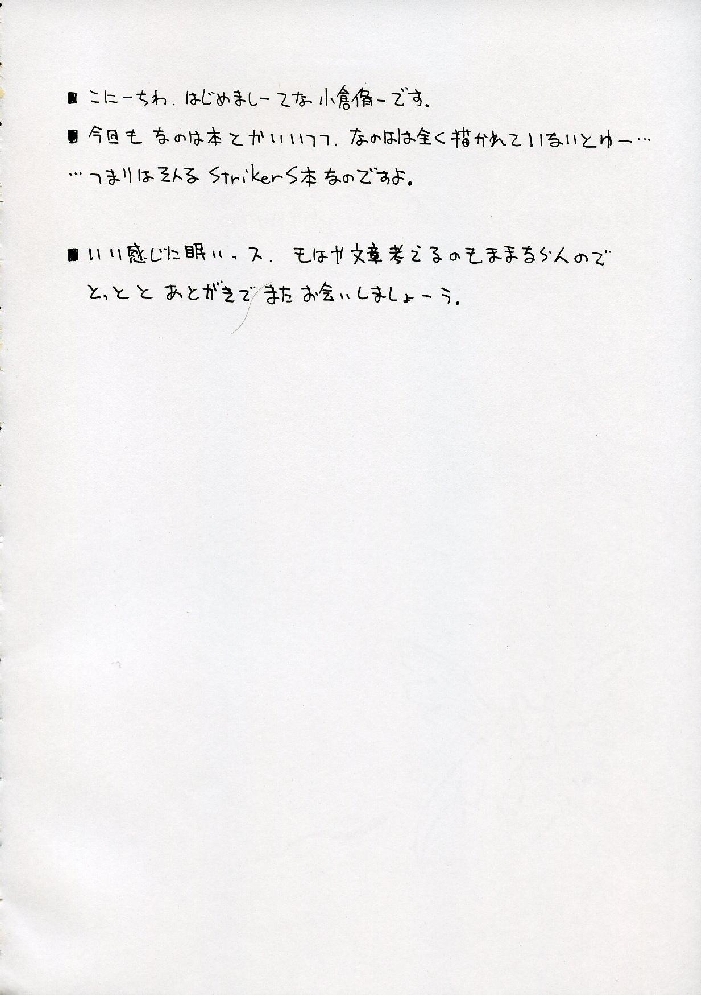 ■こにーちわ、はじめましーてな小倉脩一です。
■今回も なのは本とかいいつつ、なのはは全く描かれていないとゆー…
…つまりはそんな StrikerS本なのですよ。
■いい感じに眠いっス、もはや文章考えるのもままならんので
とっとと あとがきで またお会いしましょーう。